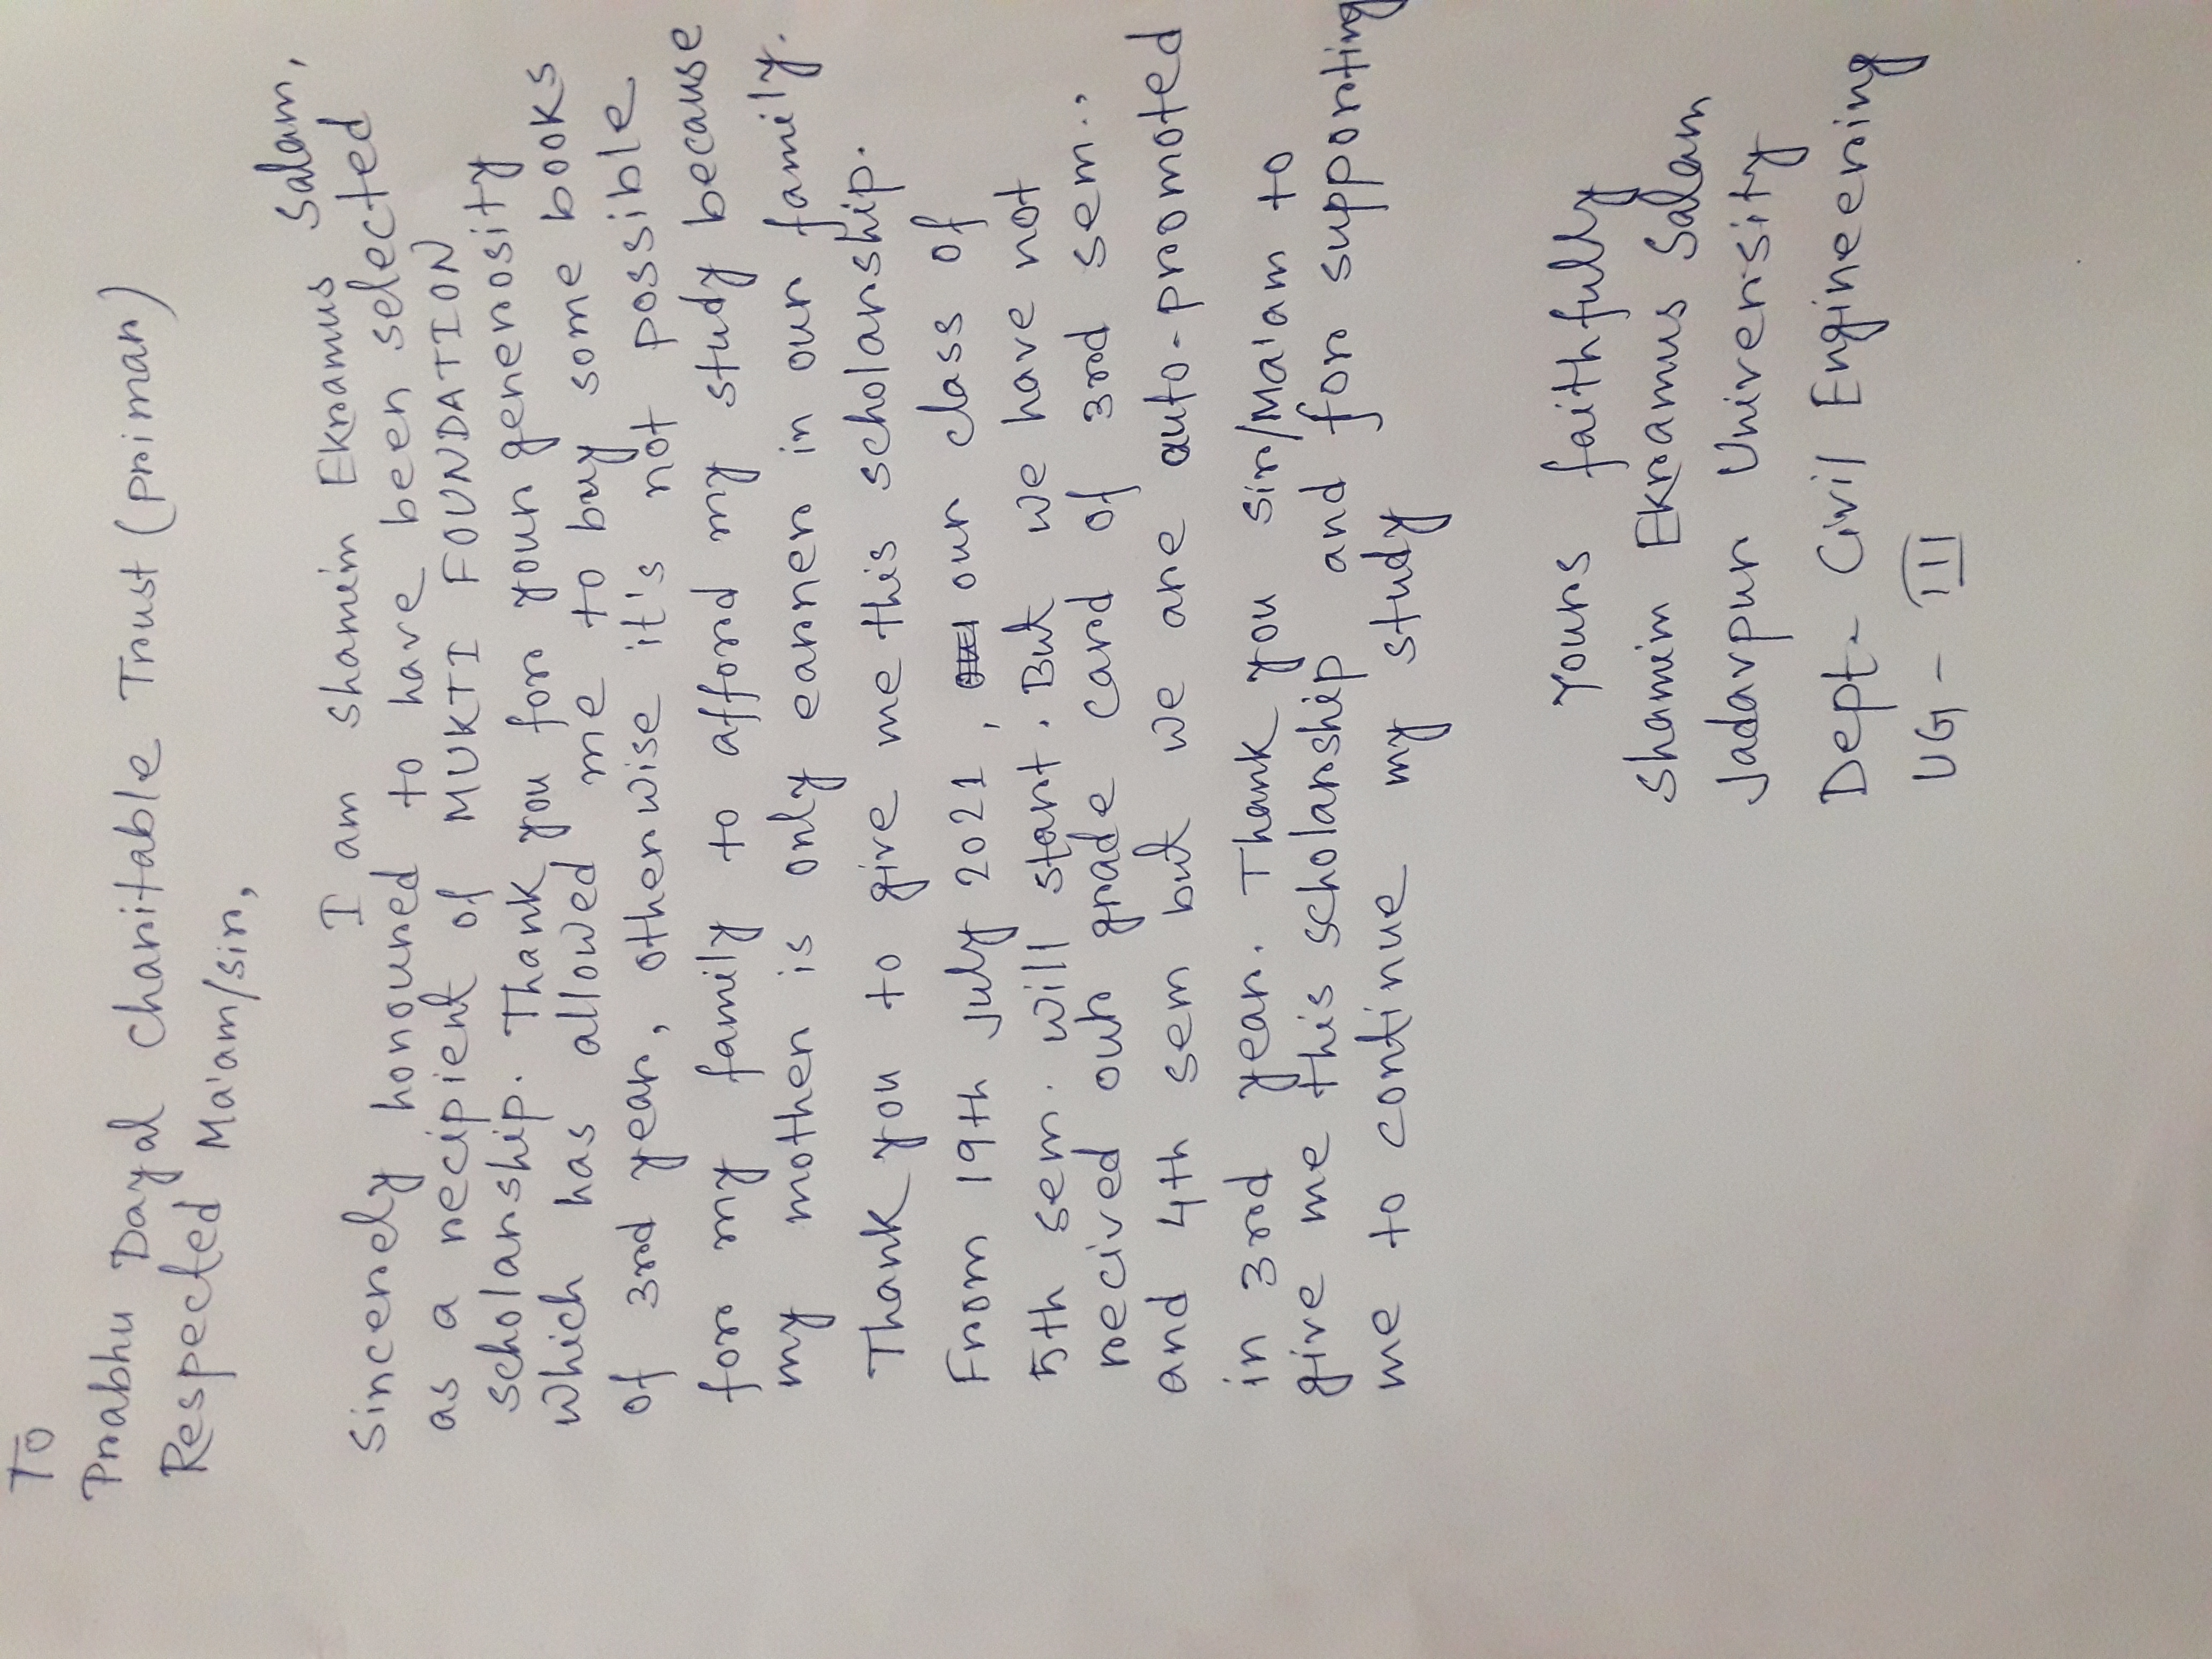 To
Prabhu Dayal Charitable Trust (priman)
Respected Ma'am/sir,
I am Shamim Ekramus Salam,
sincerely honoured to have been selected
as a recipient of MUKTI FOUNDATION
scholarship. Thank you for your generosity
which has allowed me to buy some books
of 3rd year, otherwise it's not possible
for my family to afford my study because
my mother is only earner in our family.
Thank you to give me this scholarship.
From 19th July 2021, our class of
5th sem. will start. But we have not
recived our grade card of 3rd sem.,
and 4th sem but we are auto-promoted
in 3rd year. Thank you sir/Ma'am to
give me this scholarship and for supporting
me to continue my study
Yours faithfully
Shamim Ekramus Salam
Jadavpur University
Dept- Civil Engineering
UG- III